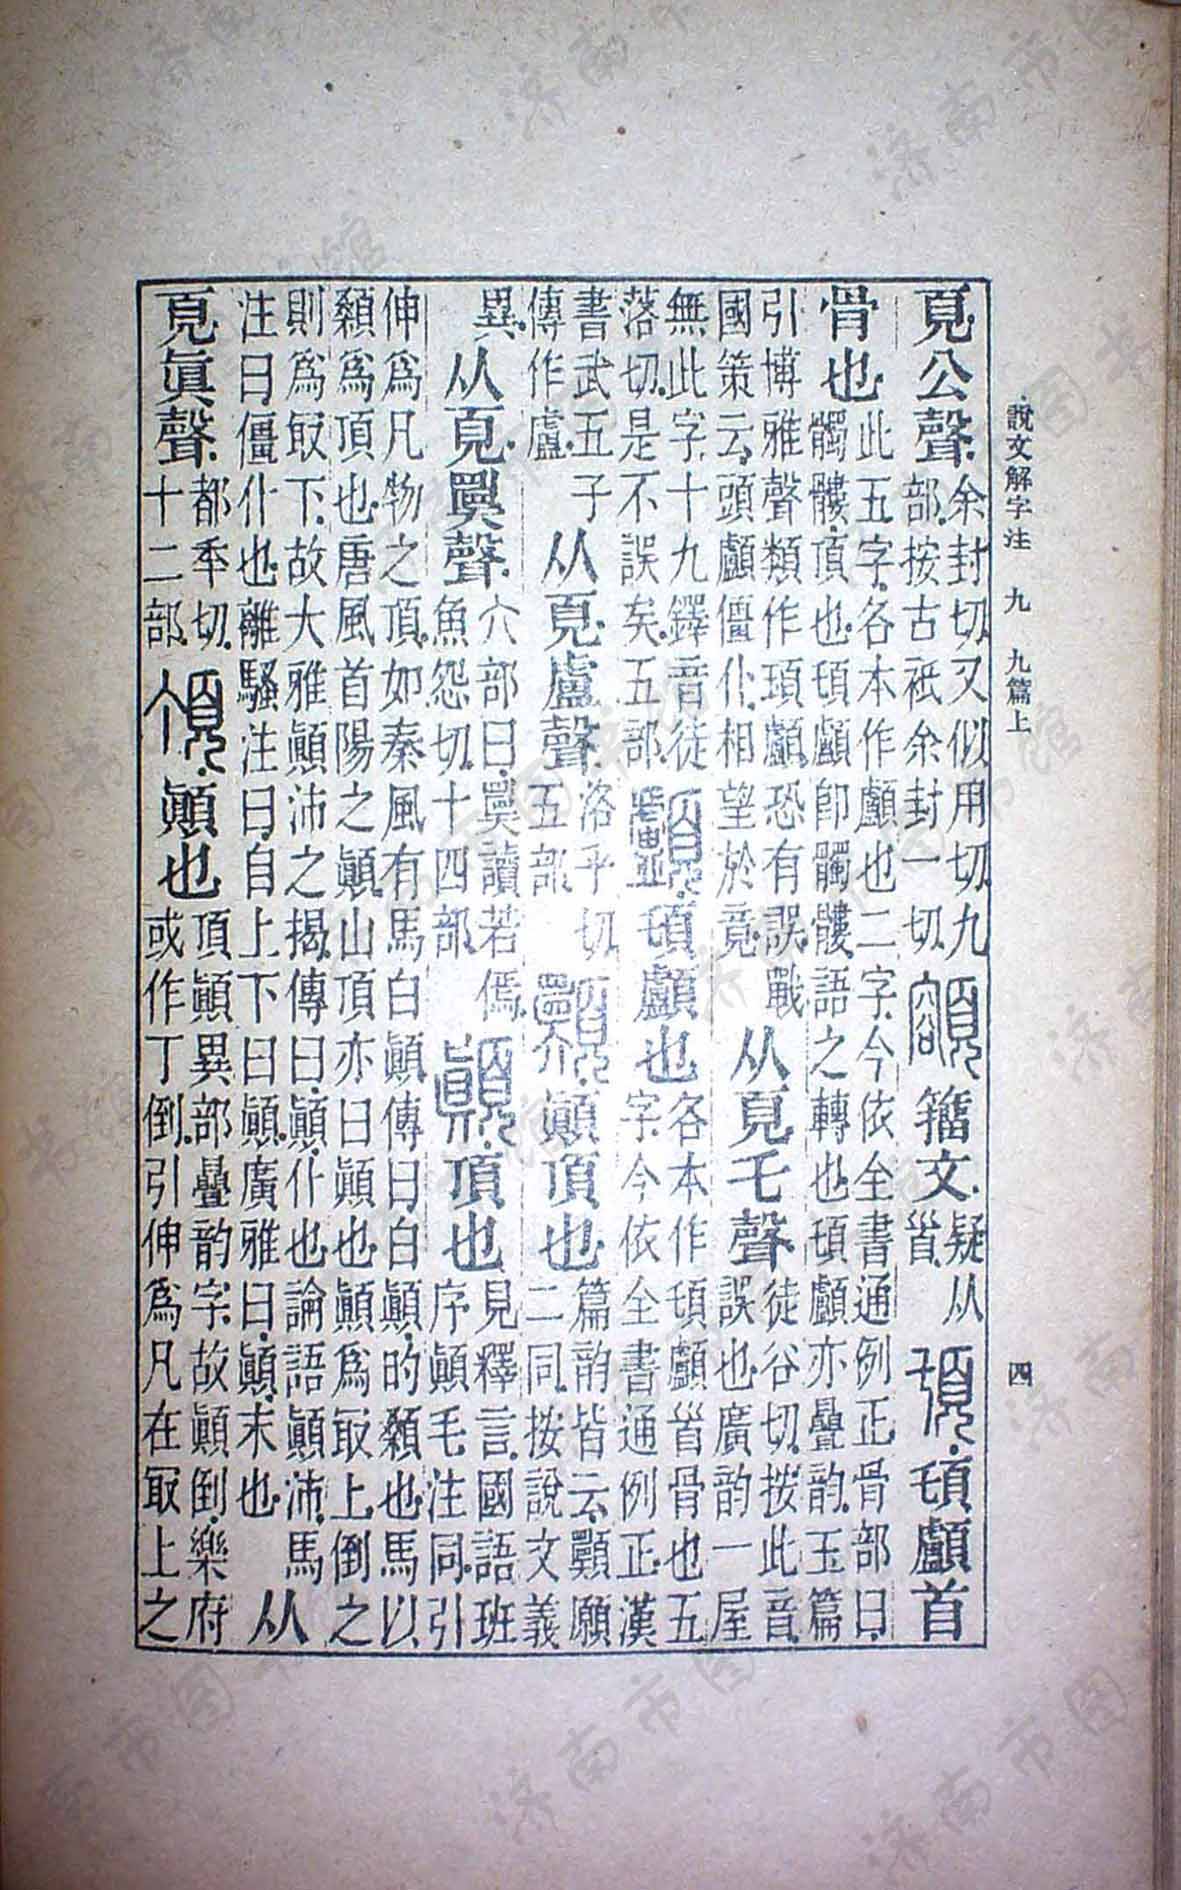 說文解字注 九 九篇上 四
頁公聲。
余封切又似用切九
部。按古衹余封一切。
籒文。
疑从
𩠐。
𩑒顱首
骨也。
此五字。各本作顱也二字。今依全書通例正。骨部曰。
髑髏。頂也。𩑒顱卽髑髏語之轉也。𩑒顱亦曡韵。玉篇
引博雅聲類作頊顱。恐有誤。戰
國策云。頭顱僵仆。相望於竟。
从頁乇聲。
徒谷切。按此音
誤也。廣韵一屋
無此字。十九鐸音徒
落切。是不誤矣。五部。
𩑒顱也。
各本作𩑒顱𩠐骨也五
字。今依全書通例正。漢
書武五子
傳作盧。
从頁盧聲。
洛乎切
五部。
顚頂也。
篇韵皆云。顨願
二同。按說文義
異。
从頁𢍆聲。
六部曰。𢍆讀若傿。
魚怨切。十四部。
頂也。
見釋言。國語班
序顚毛注同。引
伸爲凡物之頂。如秦風有馬白顚。傳曰白顚。的顙也。馬以
顙爲頂也。唐風首陽之顚。山頂亦曰顚也。顚爲㝡上。倒之
則爲㝡下。故大雅顚沛之揭。傳曰。顚。仆也。論語顚沛。馬
注曰僵仆也。離騷注曰。自上下曰顚。廣雅曰。顚。末也。
从
頁眞聲。
都秊切。
十二部。
顚也。
頂顚異部曡韵字。故顚倒。樂府
或作丁倒。引伸爲凡在㝡上之